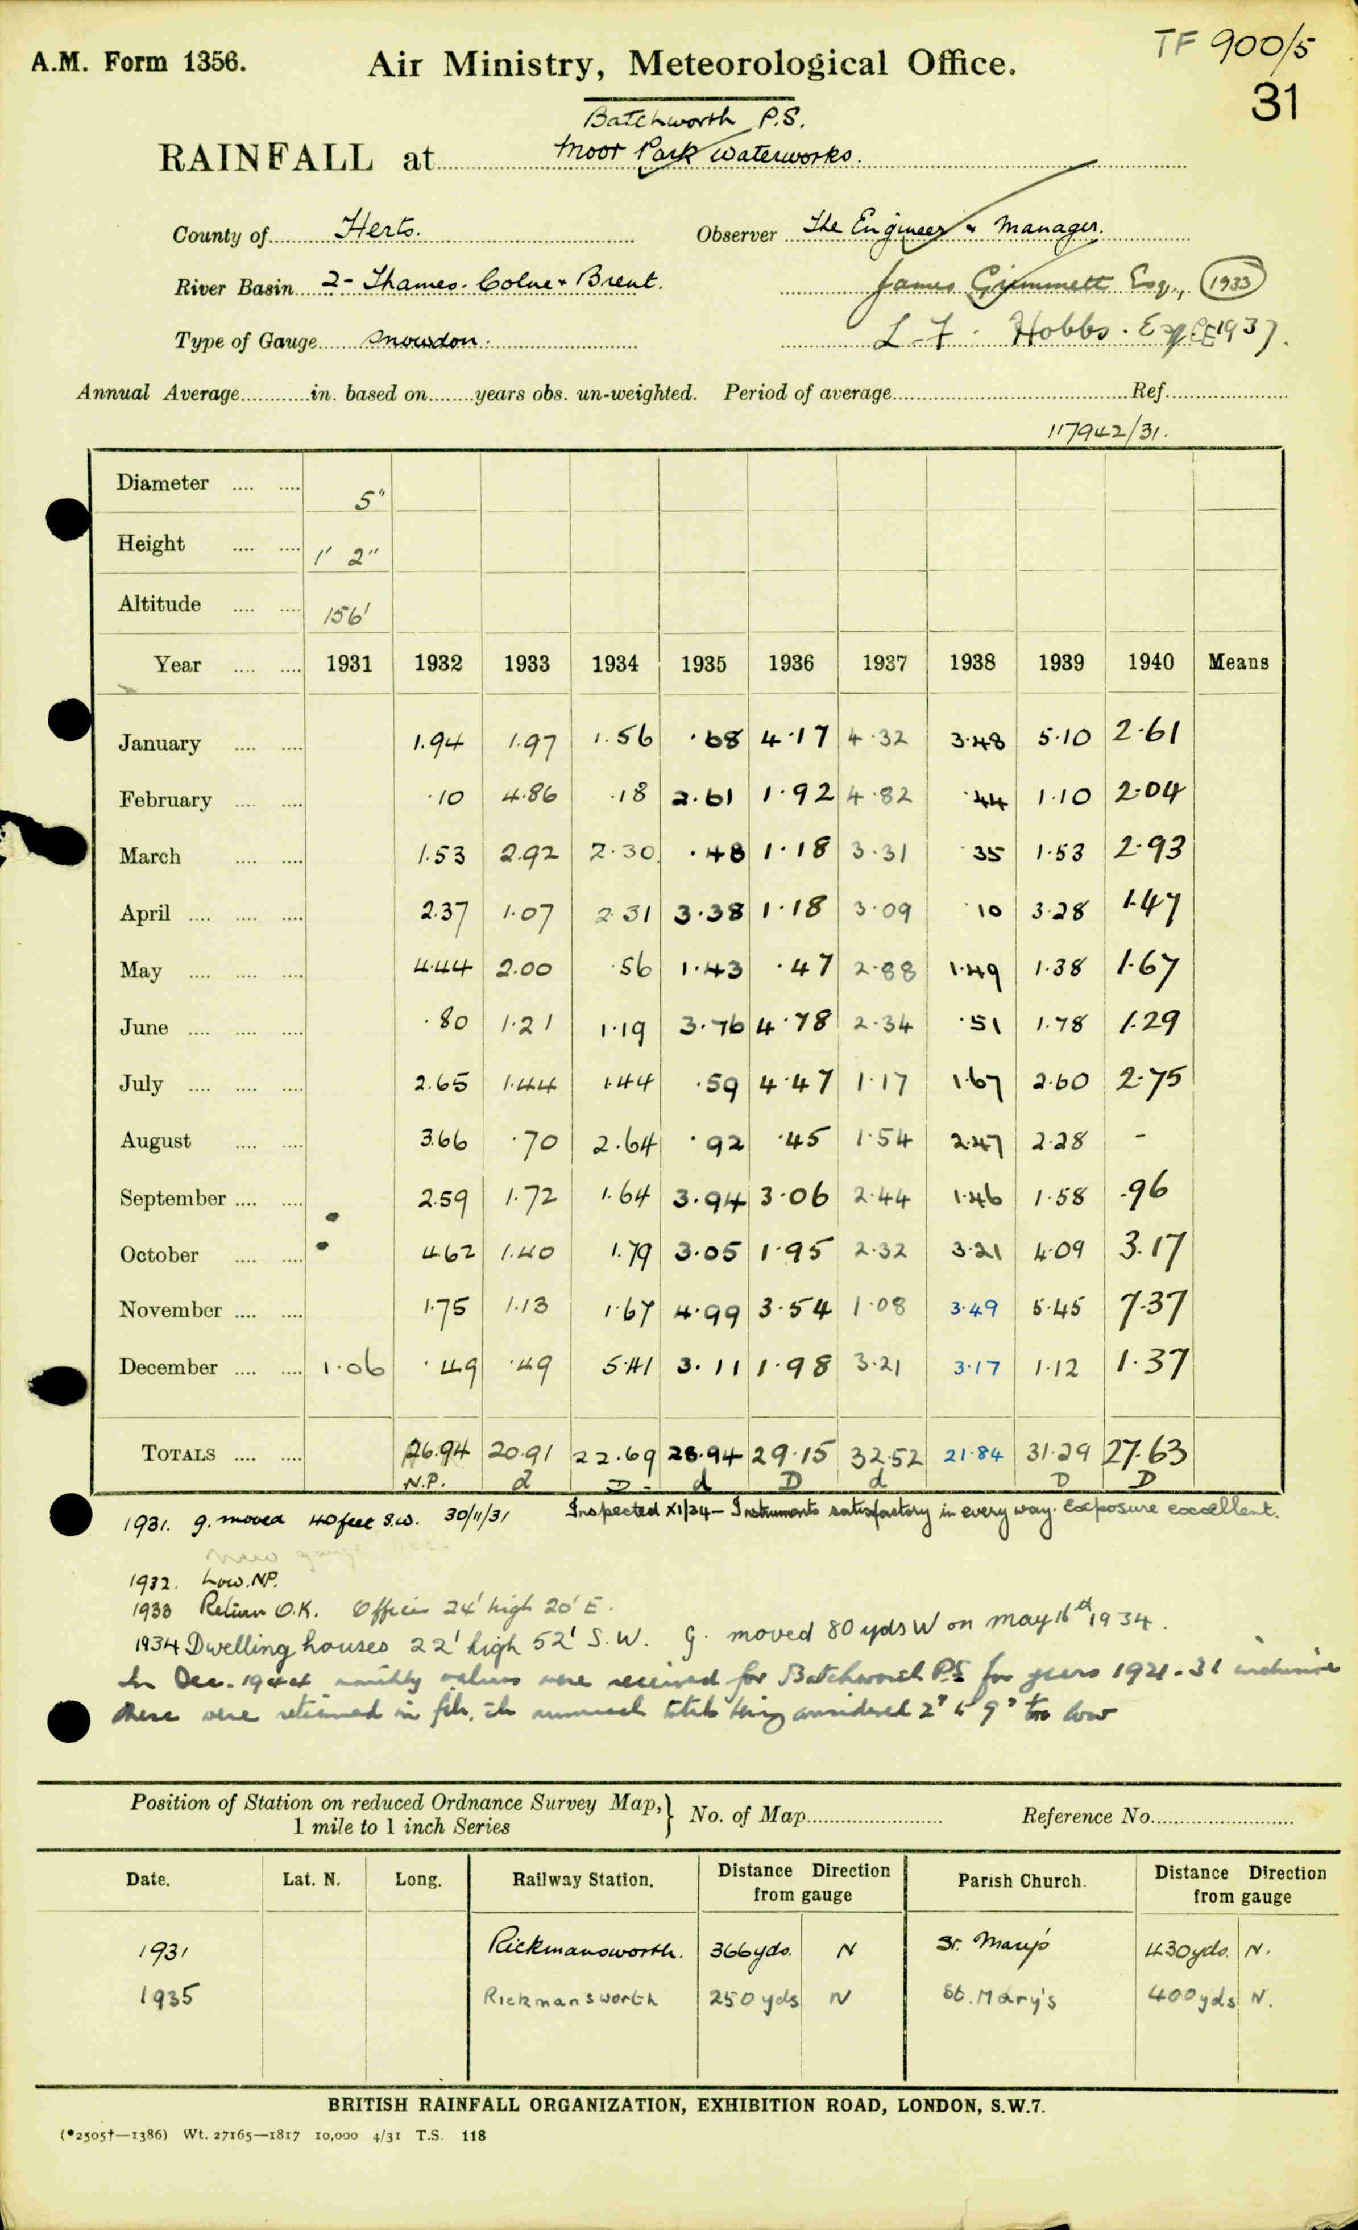 TF 900/5
A.M. Form 1356. Air Ministry, Meteorological Office. 31
Batchworth P.S.
RAINFALL at Moor Park Waterworks.
County of Herts. Observer The Engineer & Manager.
River Basin 2- Thames. Colne & Brent. James Grimmett Esq., 1933
Type of Gauge Snowdon. L. F. Hobbs. Esq 1937.
Annual Average............in. based on........years obs. un-weighted. Period of average............Ref............
117942/31.
Diameter .... .... 5"
Height .... .... 1' 2"
Altitude .... .... 156'
Year .... .... 1931 1932 1933 1934 1935 1936 1937 1938 1939 1940 Means
January .... .... 1.94 1.97 1.56 .68 4.17 4.32 3.48 5.10 2.61
February .... .... .10 4.86 .18 2.61 1.92 4.82 .44 1.10 2.04
March .... .... 1.53 2.92 2.30 .48 1.18 3.31 .35 1.53 2.93
April .... .... .... 2.37 1.07 2.31 3.38 1.18 3.09 .10 3.28 1.47
May .... .... .... 4.44 2.00 .56 1.43 .47 2.88 1.49 1.38 1.67
June .... .... .... .80 1.21 1.19 3.76 4.78 2.34 .51 1.78 1.29
July .... .... .... 2.65 1.44 1.44 .59 4.47 1.17 1.67 2.60 2.75
August .... .... 3.66 .70 2.64 .92 .45 1.54 2.47 2.28 -
September .... .... 2.59 1.72 1.64 3.94 3.06 2.44 1.46 1.58 .96
October .... .... 4.62 1.40 1.79 3.05 1.95 2.32 3.21 4.09 3.17
November .... .... 1.75 1.13 1.67 4.99 3.54 1.08 3.49 5.45 7.37
December .... .... 1.06 .49 .49 5.41 3.11 1.98 3.21 3.17 1.12 1.37
TOTALS .... .... 26.94 20.91 22.69 28.94 29.15 32.52 21.84 31.29 27.63
N.P. d D d D d D D
1931. g. moved 40 feet S.W. 30/11/31 Inspected XI/34 - Instruments satisfactory in every way. Exposure excellent.
new gauge
1932. Low. NP.
1933 Return O.K. Office 24' high 20' E.
1934 Dwelling houses 22' high 52' S.W. G. moved 80 yds W on May 16th 1934.
In Dec. 1944 monthly values were received for Batchworth P.S for years 1921-31 inclusive
these were retained in file, the annual totals being considered 2" to 9" too low
Position of Station on reduced Ordnance Survey Map, } No. of Map............ Reference No............
1 mile to 1 inch Series
Date. Lat. N. Long. Railway Station. Distance Direction from gauge Parish Church. Distance Direction from gauge
1931 Rickmansworth. 366 yds. N St. Mary's 430 yds. N.
1935 Rickmansworth 250 yds N St. Mary's 400 yds N.
BRITISH RAINFALL ORGANIZATION, EXHIBITION ROAD, LONDON, S.W.7.
(*2505†—1386) Wt. 27165—1817 10,000 4/31 T.S. 118